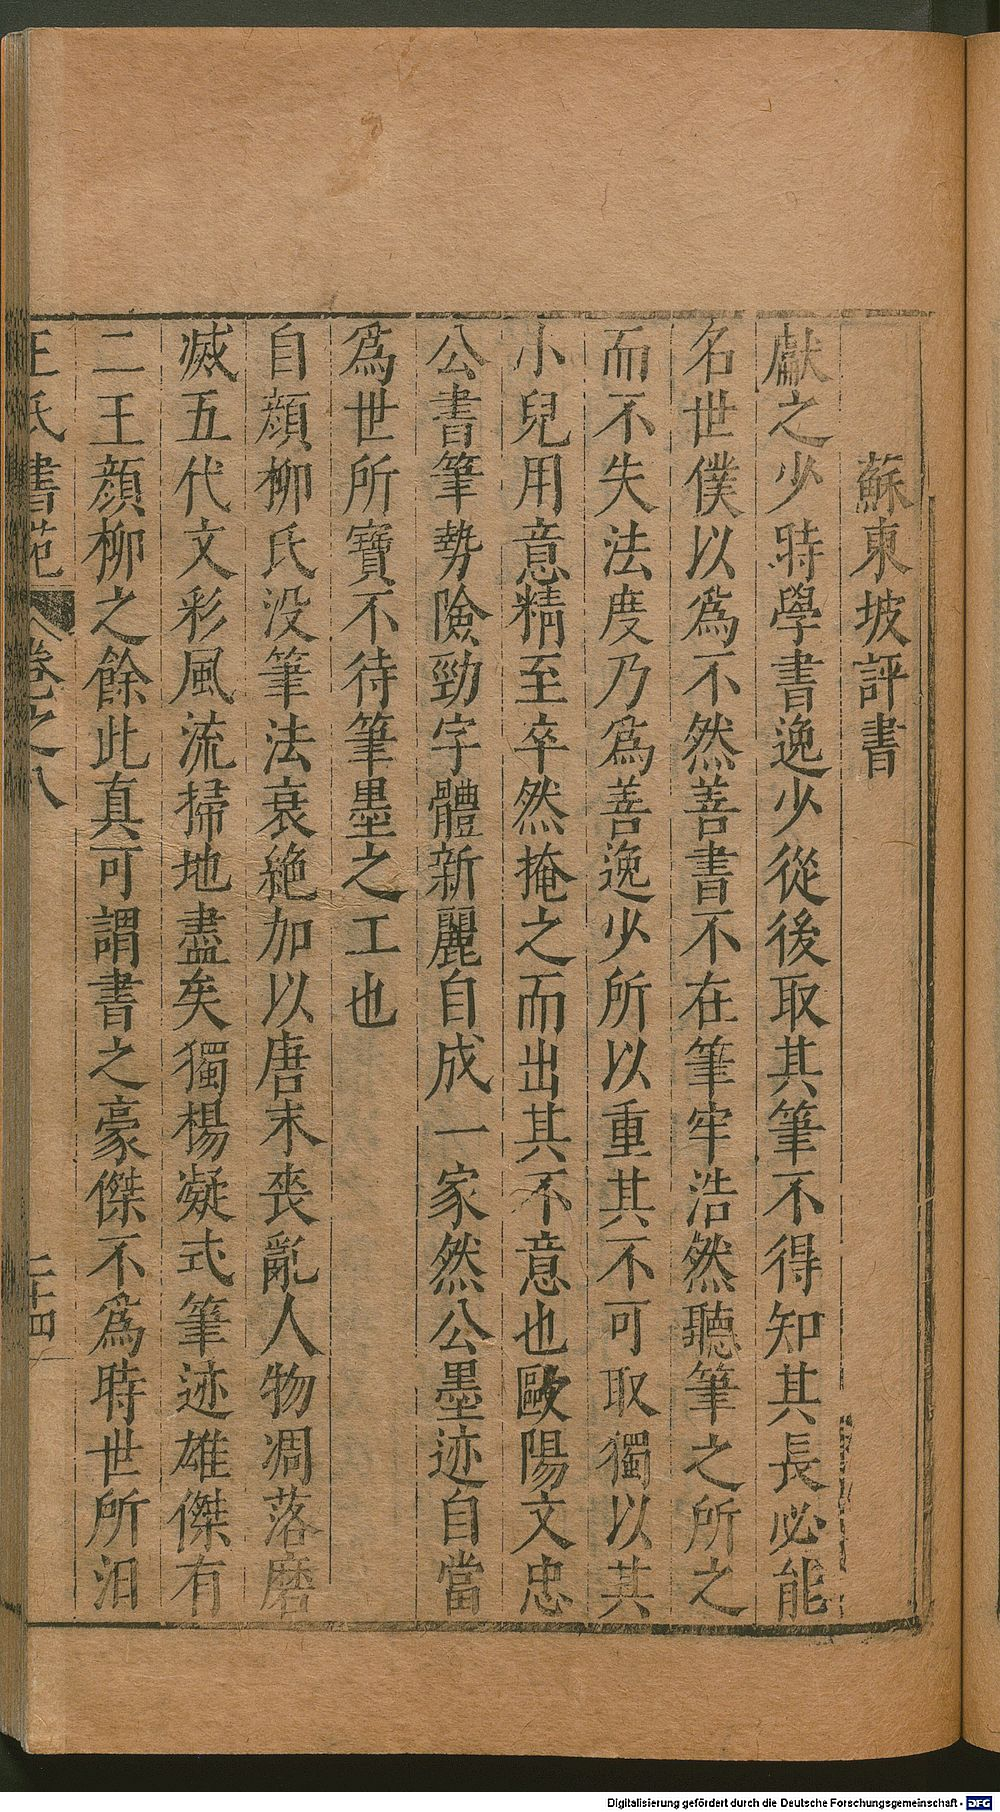 蘇東坡評書
獻之少時學書逸少從後取其筆不得知其長必能
名世僕以爲不然善書不在筆牢浩然聽筆之所之
而不失法度乃爲善逸少所以重其不可取獨以其
小兒用意精至卒然掩之而出其不意也歐陽文忠
公書筆勢險勁字體新麗自成一家然公墨迹自當
爲世所寶不待筆墨之工也
自顔柳氏没筆法衰絶加以唐末喪亂人物凋落磨
滅五代文彩風流掃地盡矣獨楊凝式筆迹雄傑有
二王顔柳之餘此真可謂書之豪傑不爲時世所汩
王氏書苑 卷之八 二十四
Digitalisierung gefördert durch die Deutsche Forschungsgemeinschaft - DFG